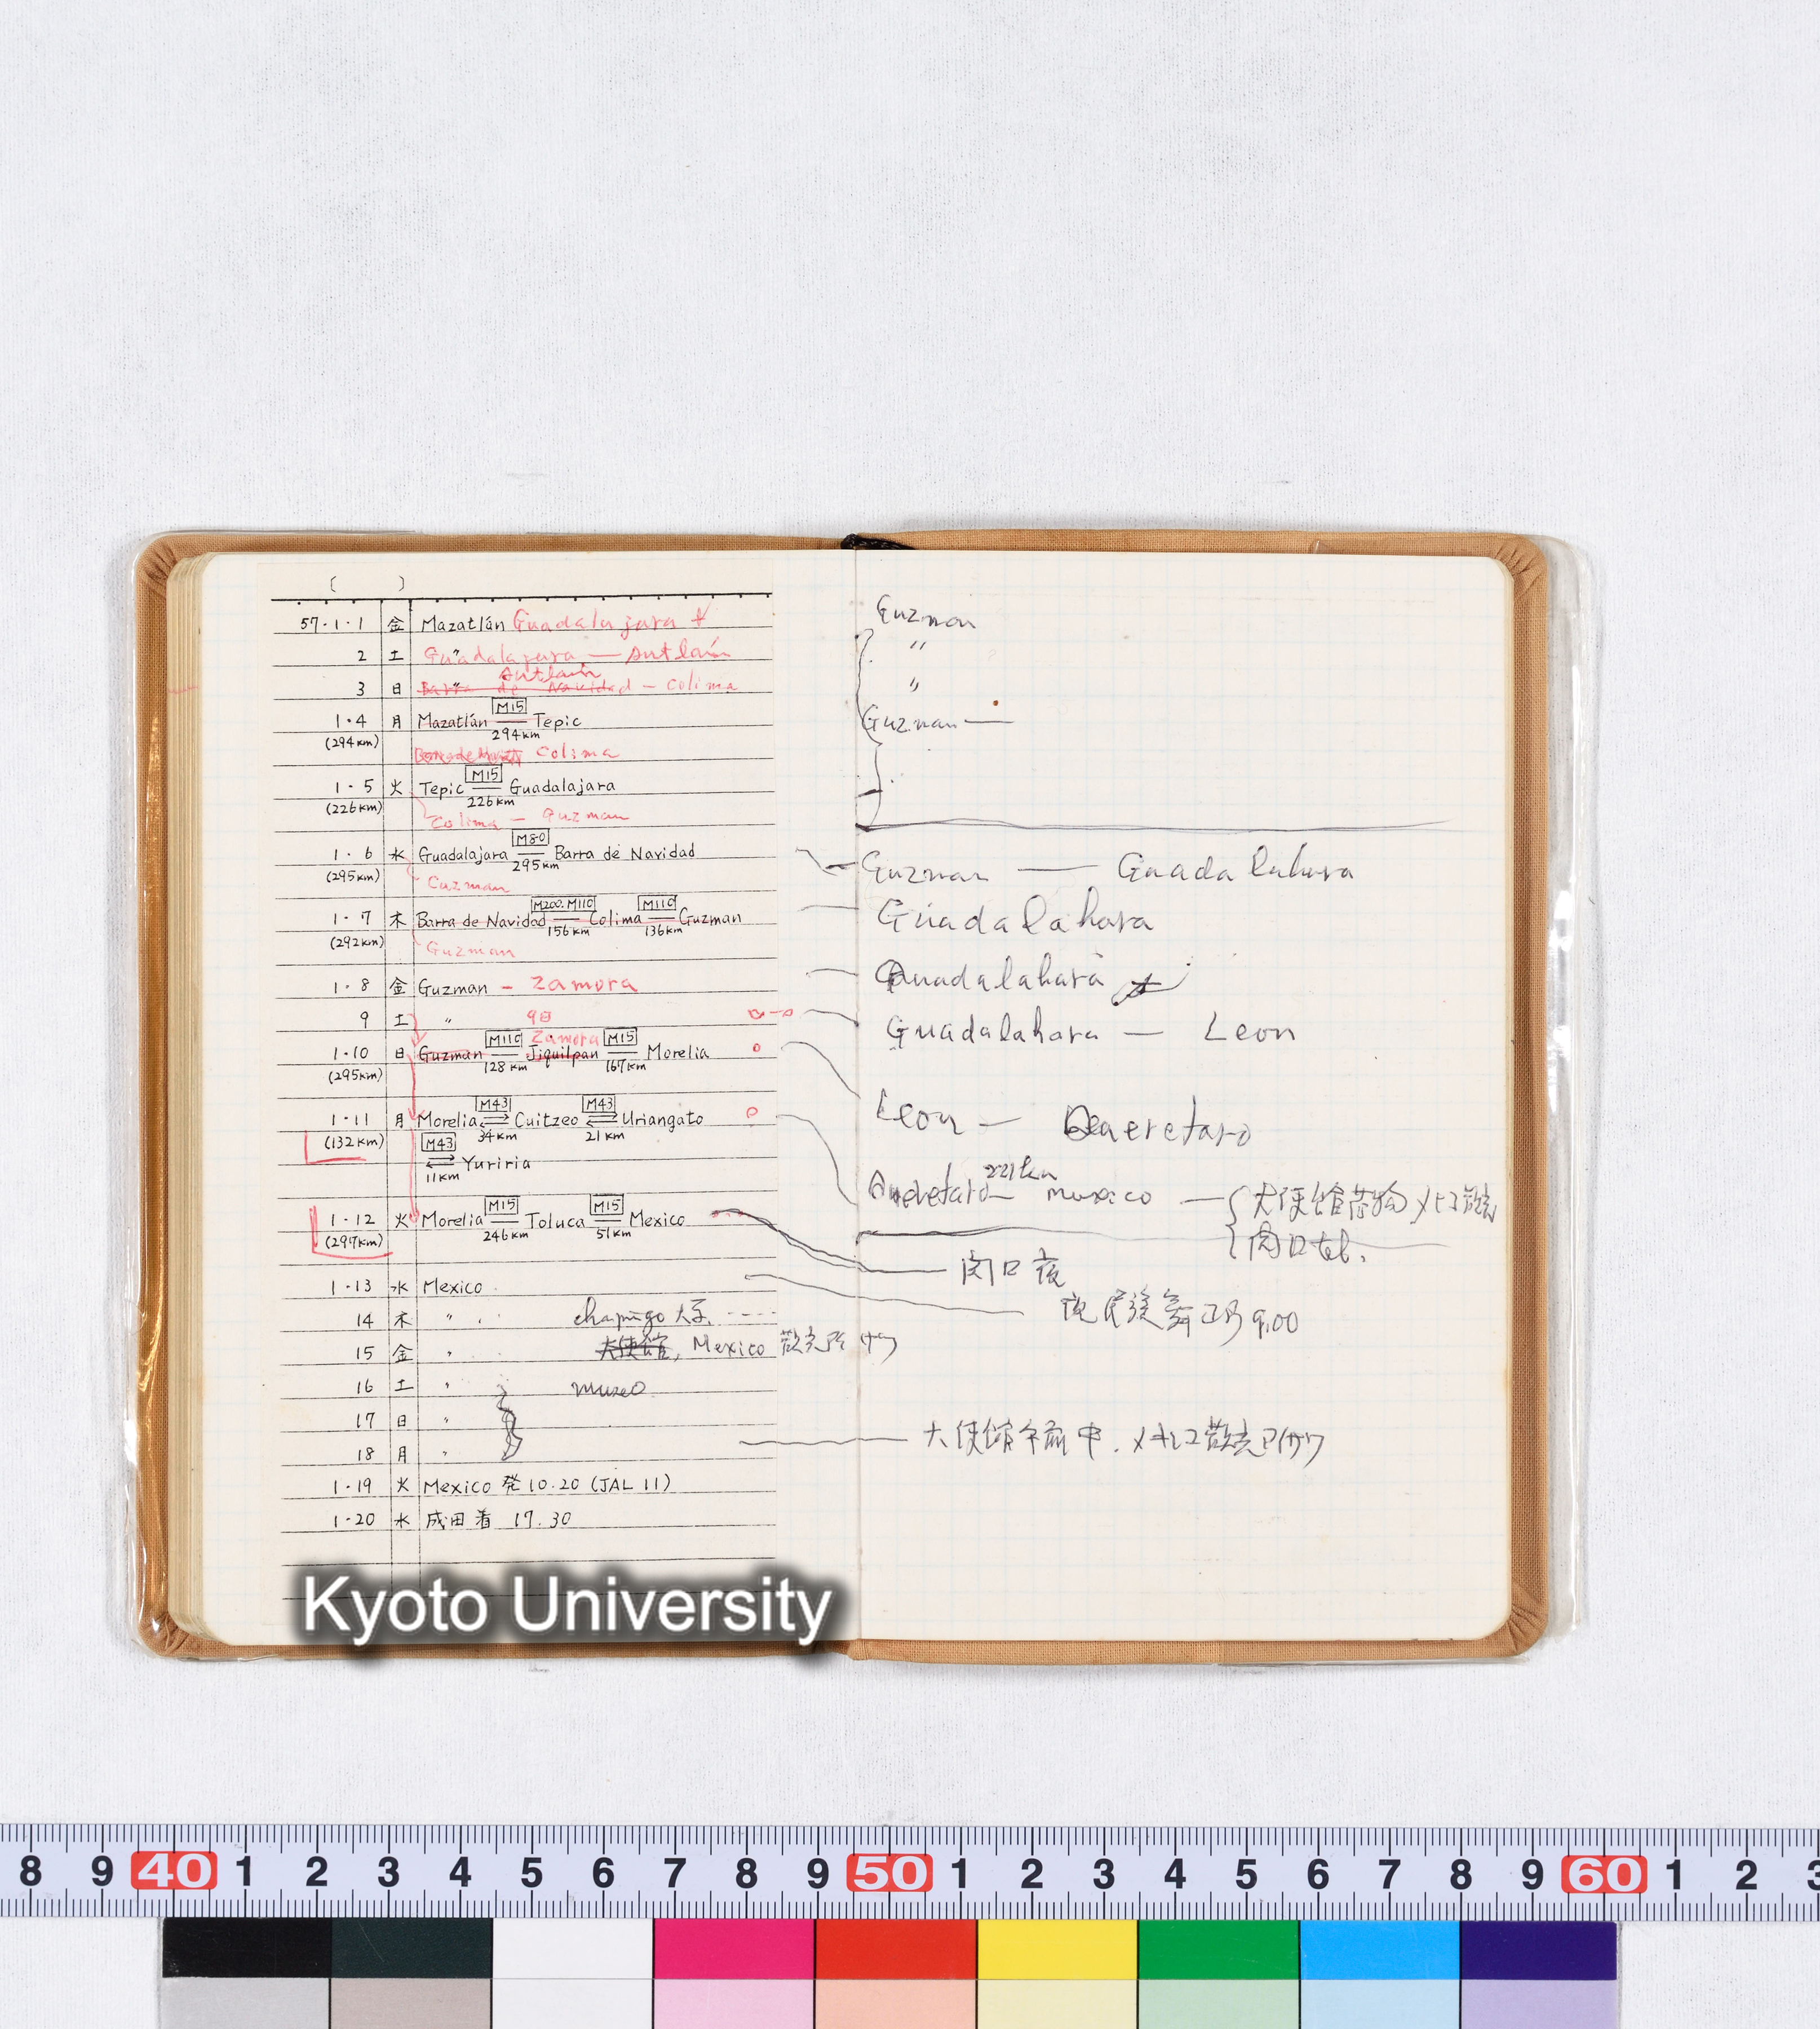 ( )
57・1・1 金 Mazatlán Guadalajara
2 土 〃 Guadalajara — Autlán
Autlán
3 日 〃 Barra de Navidad — Colima
1・4 月 Mazatlán M15 Tepic
(294km) 294km
Barra de Navidad Colima
1・5 火 Tepic M15 Guadalajara
(226km) 226km
Colima — Guzman
1・6 水 Guadalajara M80 Barra de Navidad
(295km) 295km
Guzman
1・7 木 Barra de Navidad M200.M110 Colima M110 Guzman
(292km) 156km 136km
Guzman
1・8 金 Guzman — Zamora
9 土 〃 9日
Zamora
1・10 日 Guzman M110 Jiquilpan M15 Morelia
(295km) 128km 167km
1・11 月 Morelia M43 Cuitzeo M43 Uriangato
(132km) 34km 21km
M43 Yuriria
11km
1・12 火 Morelia M15 Toluca M15 Mexico
(297km) 246km 51km
1・13 水 Mexico
14 木 〃 chapingo 大学
15 金 〃 大使館, Mexico
16 土 〃 museo
17 日 〃
18 月 〃
1・19 火 Mexico 発 10.20 (JAL 11)
1・20 水 成田着 17.30
Guzman
〃
〃
Guzman —
Guzman — Guadalahara
Guadalahara
Guadalahara
Guadalahara — Leon
Leon — Queretaro
Queretaro — 221km mexico — 大使館荷物
tel.
関口夜
夜民族舞 9.00
大使館午前中.
Kyoto University
8 9 40 1 2 3 4 5 6 7 8 9 50 1 2 3 4 5 6 7 8 9 60 1 2 3